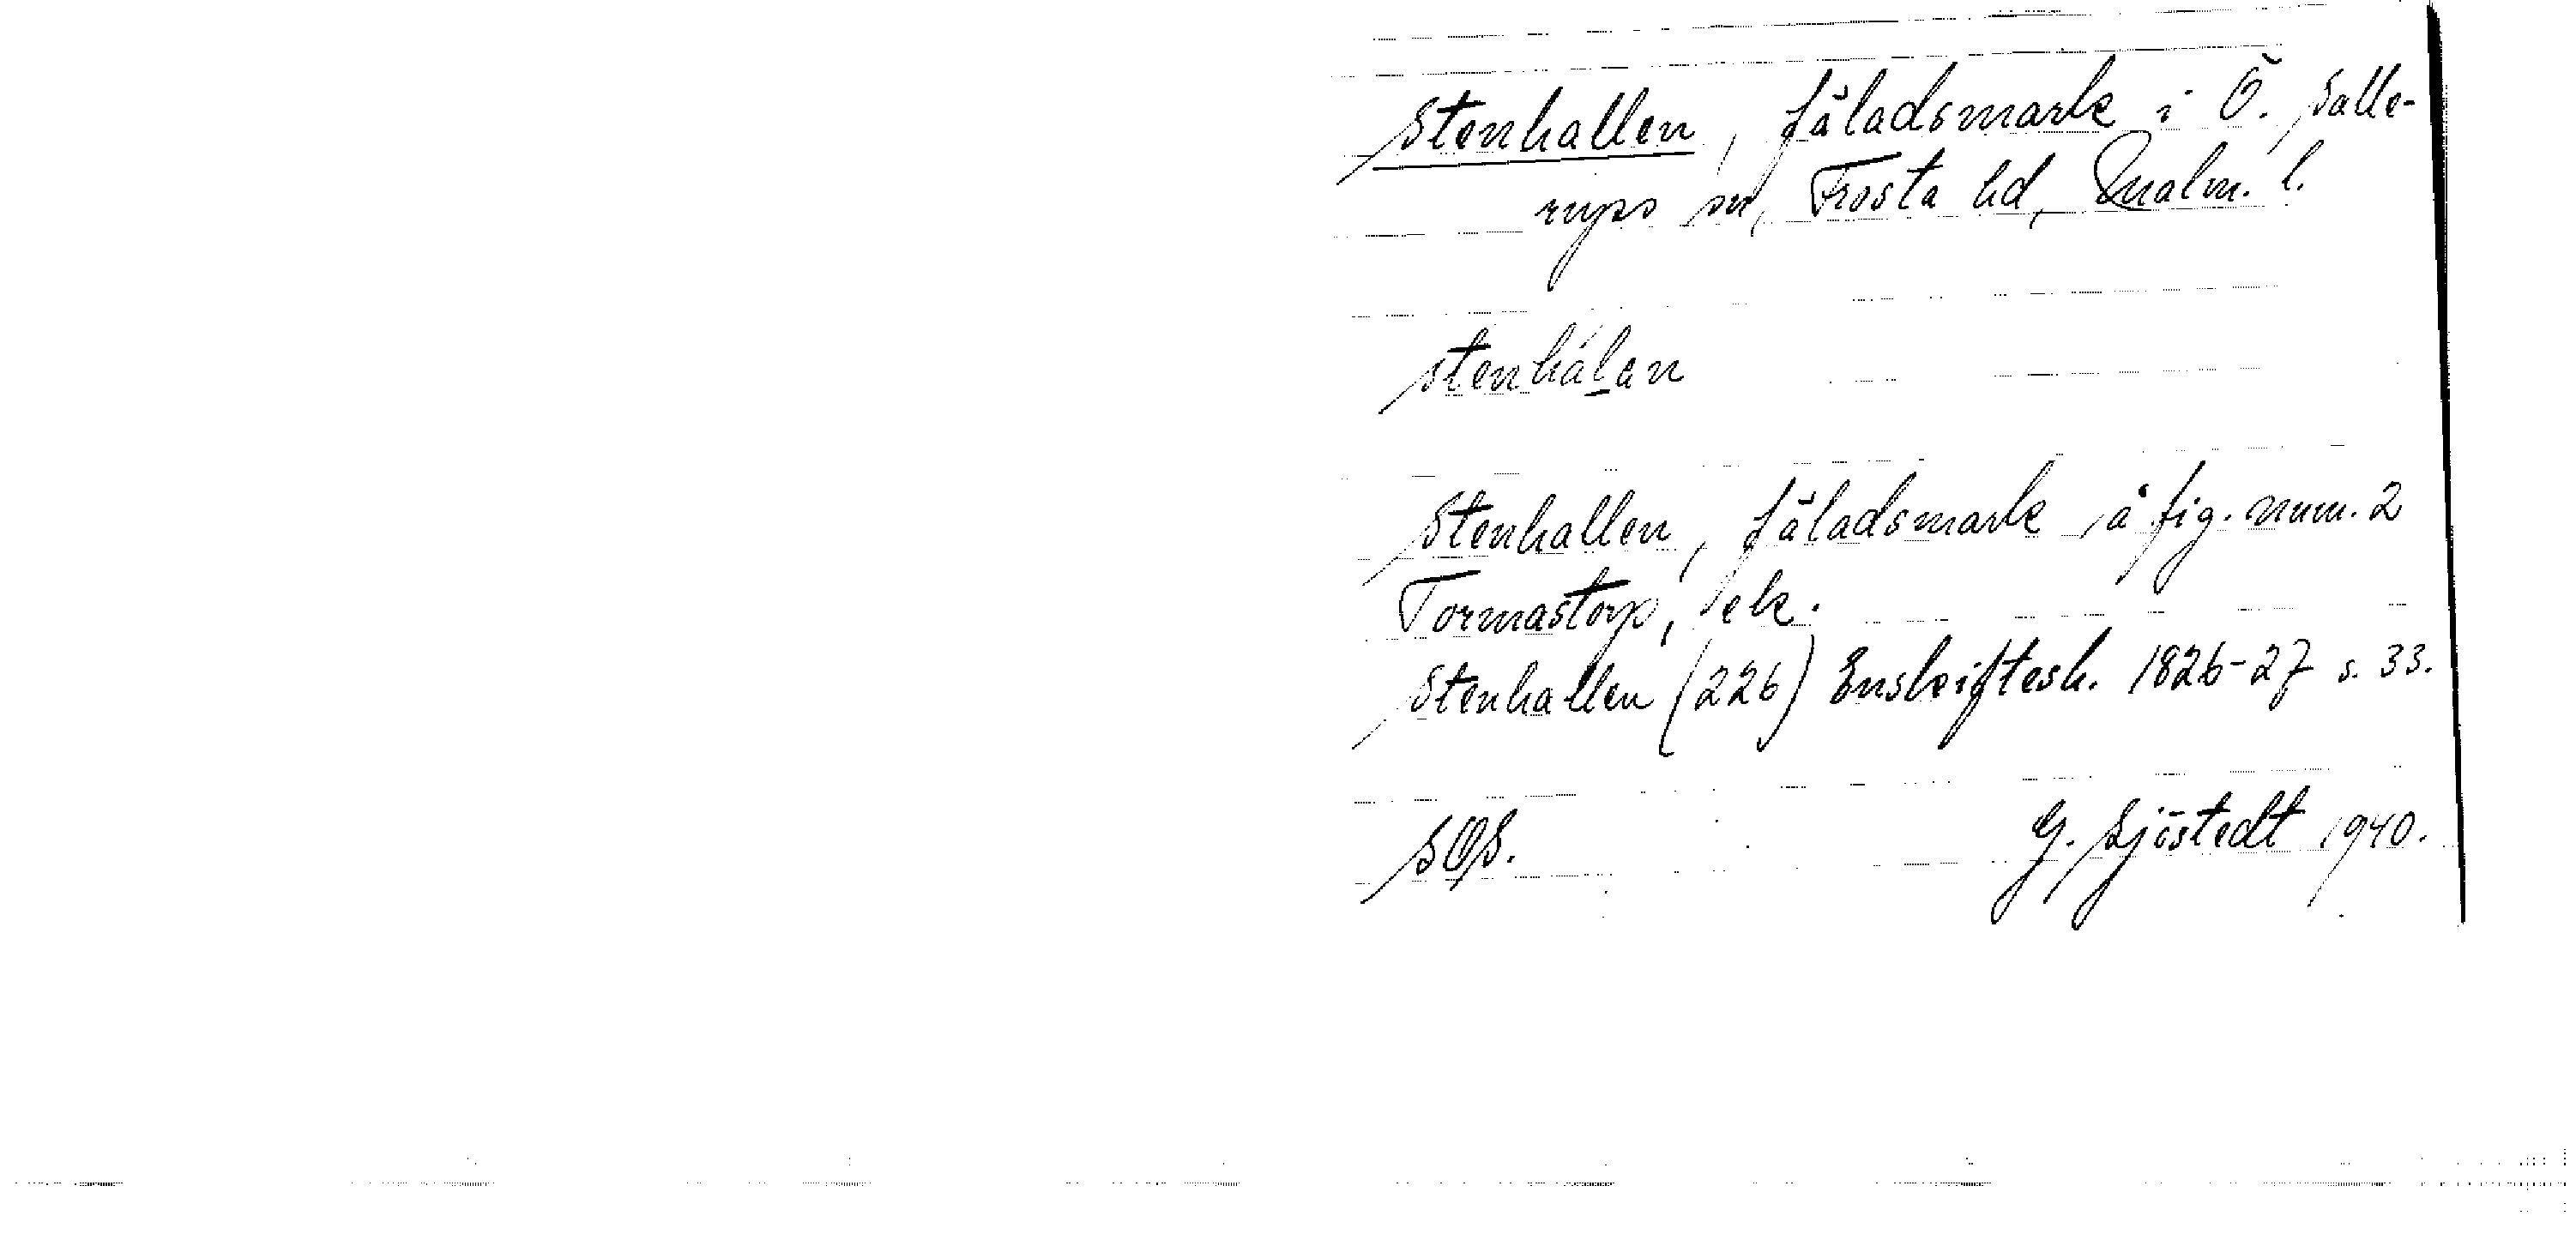 Stenhallen, fäladsmark i Ö. Salle-
rups sn, Frosta hd, Malm. l.
stenhálan
Stenhallen, fäladsmark å fig. num. 2
Tormastorp, ek.
Stenhallen (226) Enskiftesh. 1826-27 s. 33.
SOS. G. Sjöstedt 1940.